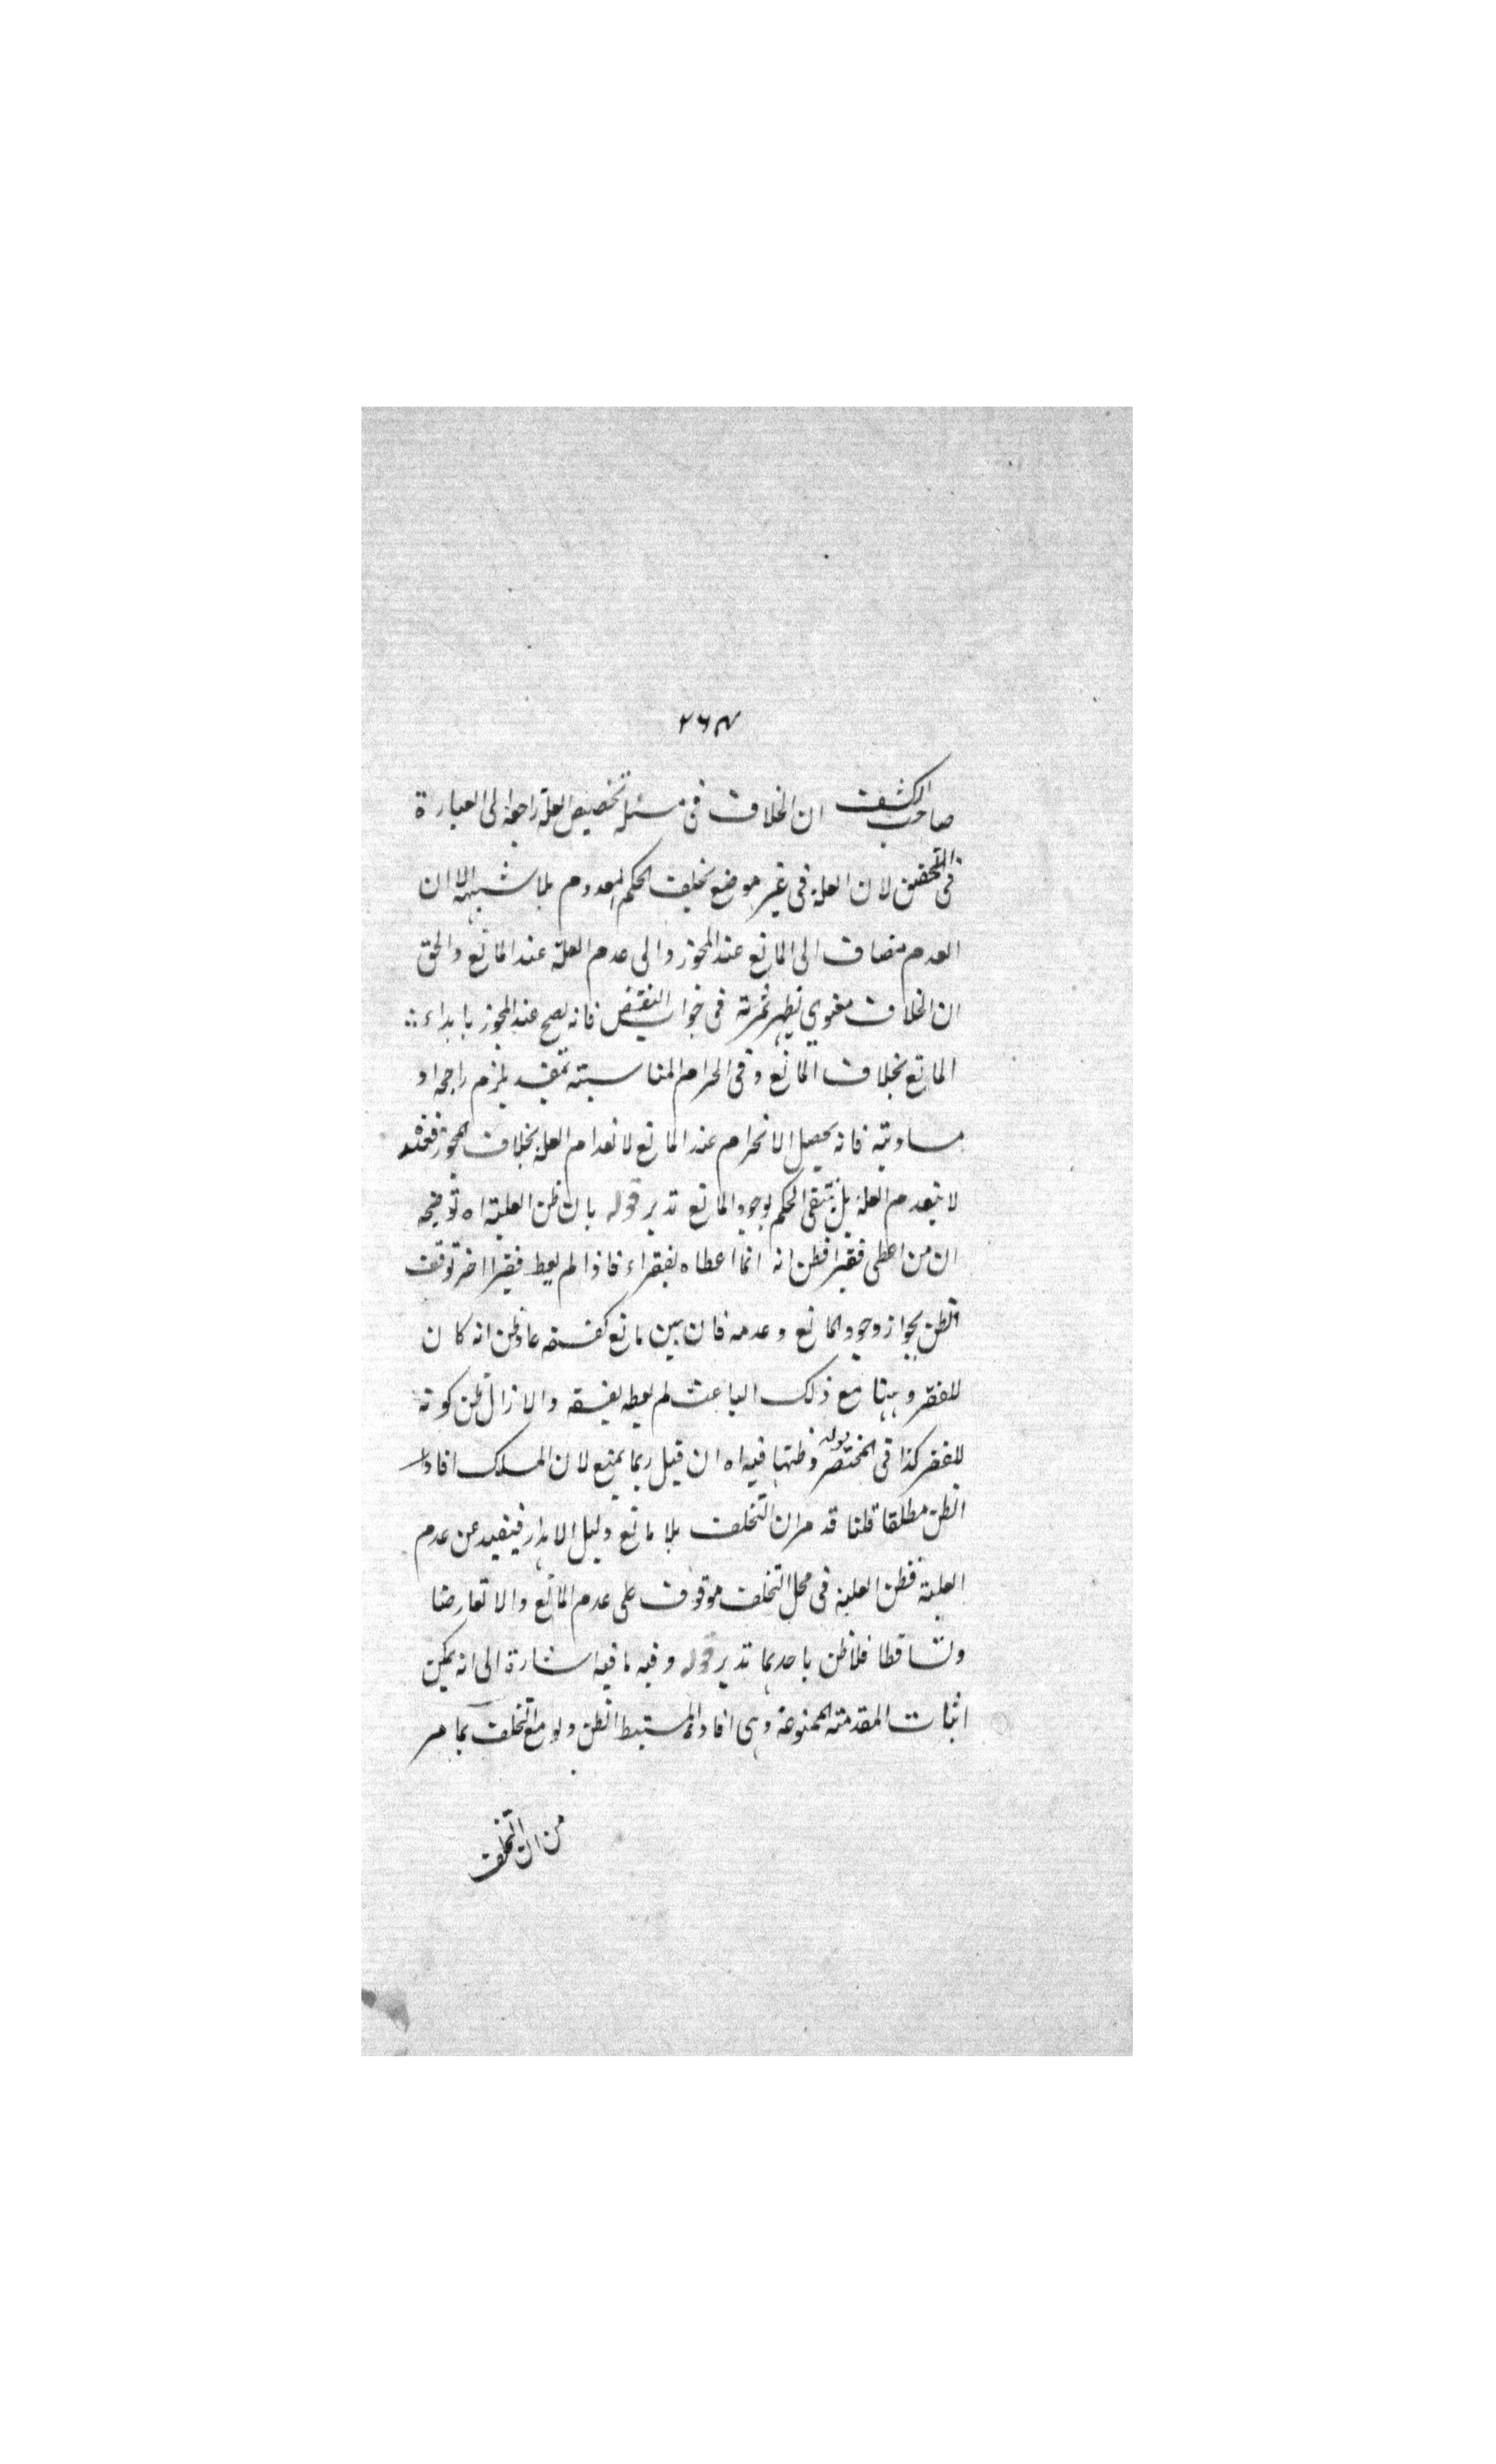 ٢٦٣
صاحب الكشف ان الخلاف فى مسئلة تخصيص العلة راجعة الى العبارة
فى التحقيق لان العلة فى غير موضع تخلف الحكم المعدوم بلا شبهة الا ان
العدم مضاف الى المانع عند المجوز والى عدم العلة عند المانع والحق
ان الخلاف معنوي يظهر ثمرته فى جواب النقيض فانه يصح عند المجوز بابداء
المانع بخلاف المانع وفى انخرام المناسبته بمفسد يلزم راجحا و
مساويته فانه يحصل الانخرام عند المانع لانعدام العلة بخلاف المجوز فعنده
لا ينعدم العلة بل ينتفى الحكم لوجود المانع تدبر قوله بان ظن العلية اه توضيحه
ان من اعطى فقيرا فظن انه انما اعطاه لفقراء فاذا لم يعط فقيرا اخر توقف
الظن بجواز وجود المانع وعدمه فان بين مانع كفسقه عاد ظن انه كان
للفقر وهنا مع ذلك الباعث لم يعطه لفسقه والا زال ظن كونه
للفقر كذا فى المختصر قوله وظنها فيه اه ان قيل ربما يمنع لان المسلك افاد
الظن مطلقا قلنا قد مر ان التخلف بلا مانع دليل الاهدار فيفيد عن عدم
العلية فظن العلية فى محل التخلف موقوف على عدم المانع والا تعارضا
وتساقطا فلا ظن باحدهما تدبر قوله وفيه ما فيه اشارة الى انه يمكن
اثبات المقدمته الممنوعة وهى افادة المستنبط الظن ولو مع التخلف بما مر
من ان التخلف